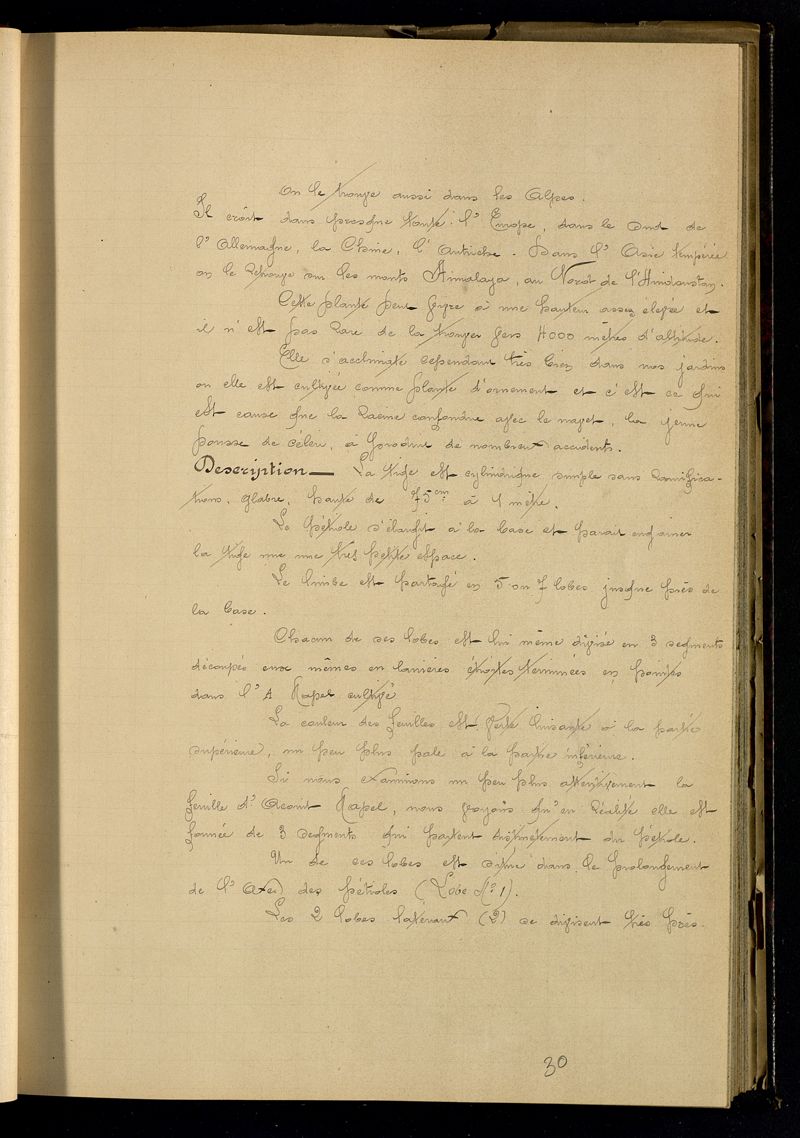 On le trouve aussi dans les Alpes.
Il croît dans presque toute l'Europe, dans le Sud de
l'Allemagne, la Chine, l'Autriche. Dans l'Asie tempérée
on le retrouve sur les monts Himalaya, au Nord de l'Hindoustan.
Cette plante peut vivre à une hauteur assez elevée et
il n'est pas rare de la trouver vers 4000 mètres d'altitude.
Elle s'acclimate cependant très bien dans nos jardins
ou elle est cultivée comme plante d'ornement et c'est ce qui
est cause que la Racine confondue avec le navet, la jeune
pousse de céleri, à produit de nombreux accidents.
Description — La tige est cylindrique, simple sans Ramifica-
tions, glabre, haute de 75cm à 1 mètre.
Le pétiole s'élargit à la base et parait engainer
la tige sur une très petite espace.
Le limbe est partagé en 5 ou 7 lobes jusque près de
la base.
Chacun de ses lobes est lui même divisé en 3 segments
découpés eux mêmes en lanières étroites terminées en pointes
dans l'A Napel cultivé
La couleur des feuilles est verte luisante à la partie
supérieure, un peu plus pale à la partie inférieure.
Si nous examinons un peu plus attentivement la
feuille d'Aconit Napel, nous voyons qu'en Réalité elle est
formée de 3 segments qui partent distinctement du pétiole.
Un de ces lobes est situé dans le prolongement
de l'Axe des pétioles (Lobe No 1).
Les 2 lobes latéraux (2) se divisent très près.
30